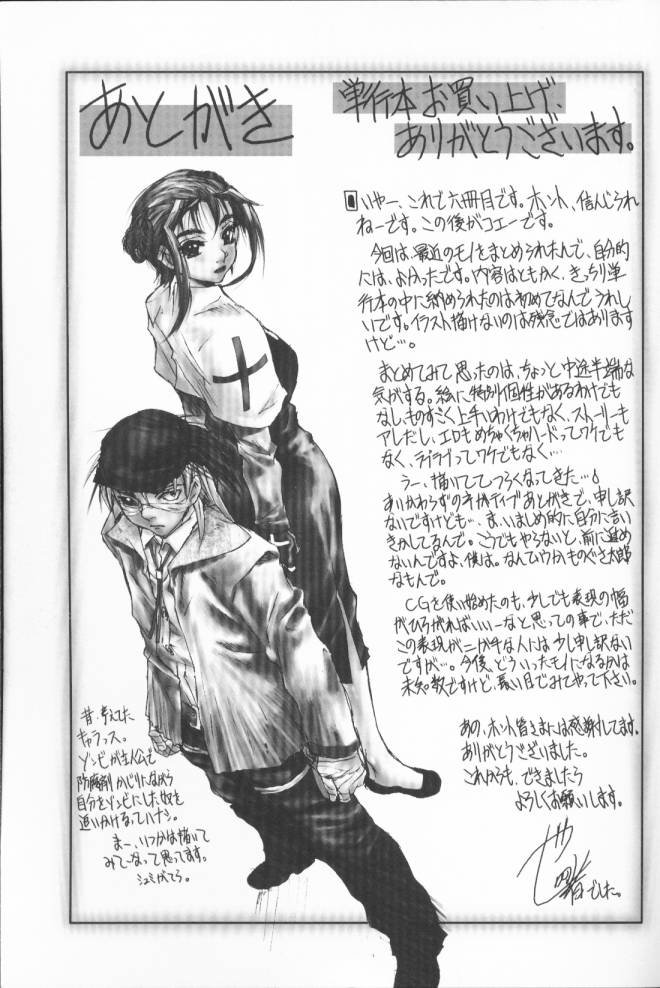 あとがき
単行本お買い上げ、
ありがとうございます。
いやー、これで六冊目です。ホント、信じられ
ねーです。この後がコエーです。
今回は、最近のモノをまとめられたんで、自分的
には、よかったです。内容はともかく、きっちり単
行本の中に納められたのは初めてなんでうれし
いです。イラスト描けないのは残念ではあります
けど…。
まとめてみて思ったのは、ちょっと中途半端な
気がする。絵に特別個性があるわけでも
なし、ものすごく上手いわけでもなく、ストーリーも
アレだし、エロもめちゃくちゃハードってワケでも
なく、ラブラブってワケでもなく…
うー、描いててつらくなってきた…
あいかわらずのネガティブあとがきで、申し訳
ないですけども…ま、いましめ的に自分に言い
きかしてるんで。こうでもやらないと、前に進め
ないんですよ、僕は。なんていうかものぐさ太郎
なもんで。
CGを使い始めたのも、少しでも表現の幅
がひろがればいいーなと思っての事で、ただ
この表現がニガ手な人には少し申し訳ない
ですが…。今後、どういったモノになるかは
未知数ですけど、長い目でみてやって下さい。
あの、ホント皆さまには感謝してます。
ありがとうございました。
これからも、できましたら
よろしくお願いします。
でした。
昔、考えてた
キャラっス。
ゾンビが主人公で
防腐剤かじりながら
自分をゾンビにした奴を
追いかけるっていう。
まー、いつかは描いて
みてーなって思ってます。
シュミがてら。